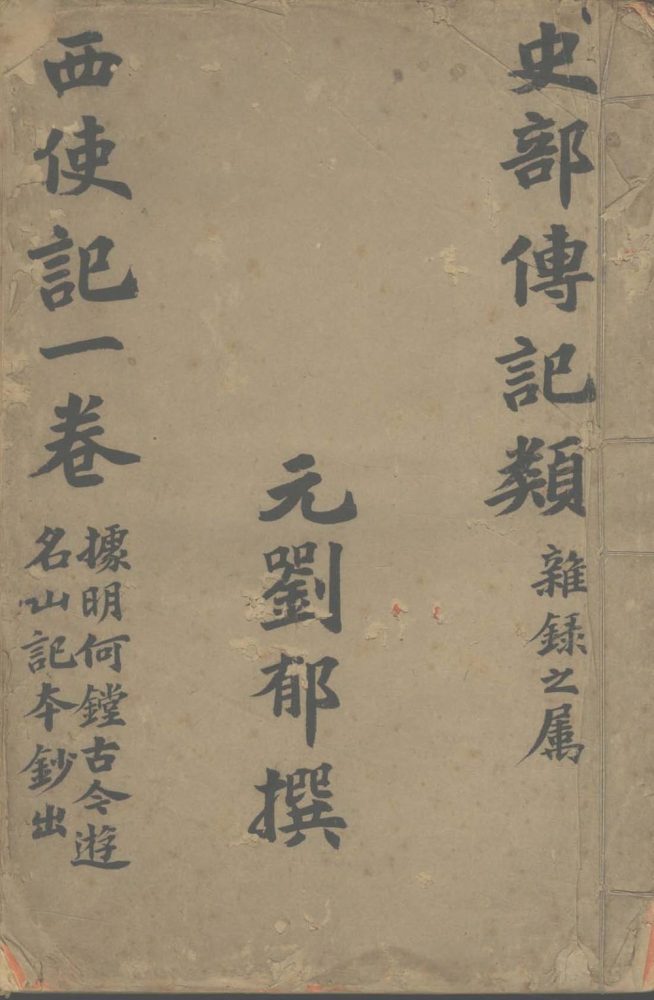 史部傳記類 雜録之属
元劉郁撰
西使記一卷 據明何鏜古今遊
名山記本鈔出